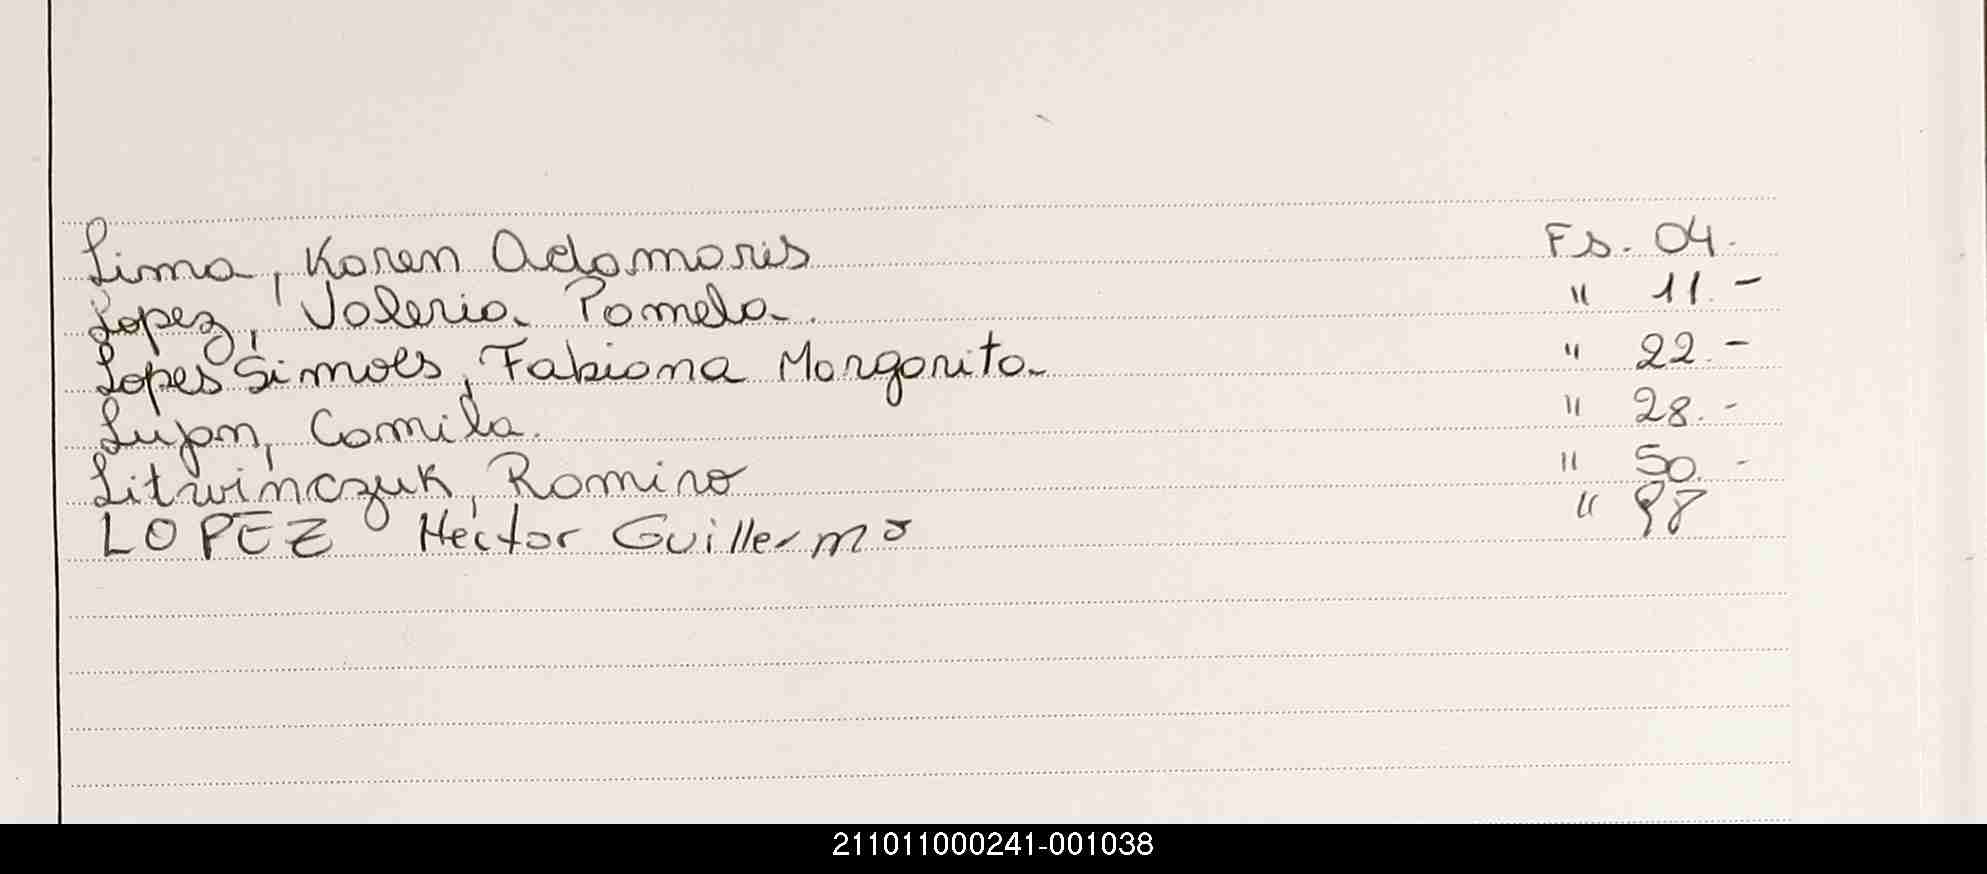 Lima, Karen Adamaris Fs. 04.
Lopez, Valeria Pamela. " 11.-
Lopes Simoes, Fabiana Margarita " 22.-
Lujan, Camila. " 28.-
Litwinczuk, Romina " 50.-
LOPEZ Hector Guillermo " 98
211011000241-001038